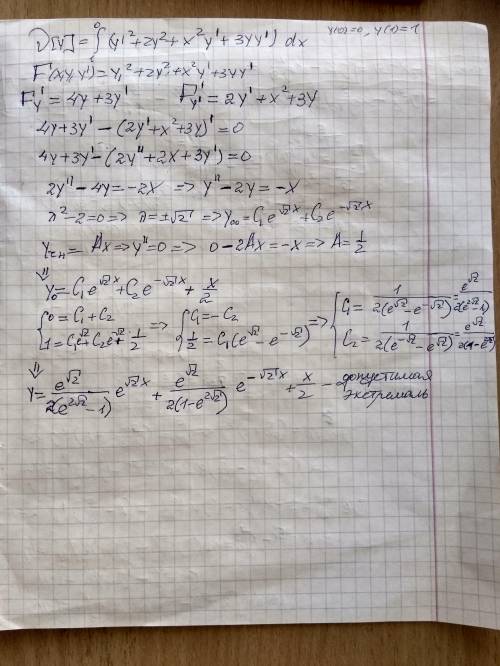 y(0)=0, y(1)=1
V[y]=∫₀(y'²+2y²+x²y'+3yy') dx
F(x,y,y')=y'²+2y²+x²y'+3yy'
F'y=4y+3y' F'y'=2y'+x²+3y
4y+3y'-(2y'+x²+3y)'=0
4y+3y'-(2y''+2x+3y')=0
2y''-4y=-2x => y''-2y=-x
λ²-2=0 => λ=±√2 => y₀₀=C₁e^{√2x}+C₂e^{-√2x}
yчн=Ax => y''=0 => 0-2Ax=-x => A=1/2
⇓
y₀=C₁e^{√2x}+C₂e^{-√2x}+x/2
{0=C₁+C₂ {C₁=-C₂ {C₁=1/(2(e^{√2}-e^{-√2}))=e^{√2}/(2(e^{2√2}-1))
{1=C₁e^{√2}+C₂e^{-√2}+1/2 => {1/2=C₁(e^{√2}-e^{-√2}) => {C₂=1/(2(e^{-√2}-e^{√2}))=e^{√2}/(2(1-e^{2√2}))
⇓
y=e^{√2}/(2(e^{2√2}-1)) e^{√2x}+e^{√2}/(2(1-e^{2√2})) e^{-√2x}+x/2 - допустимая
экстремаль